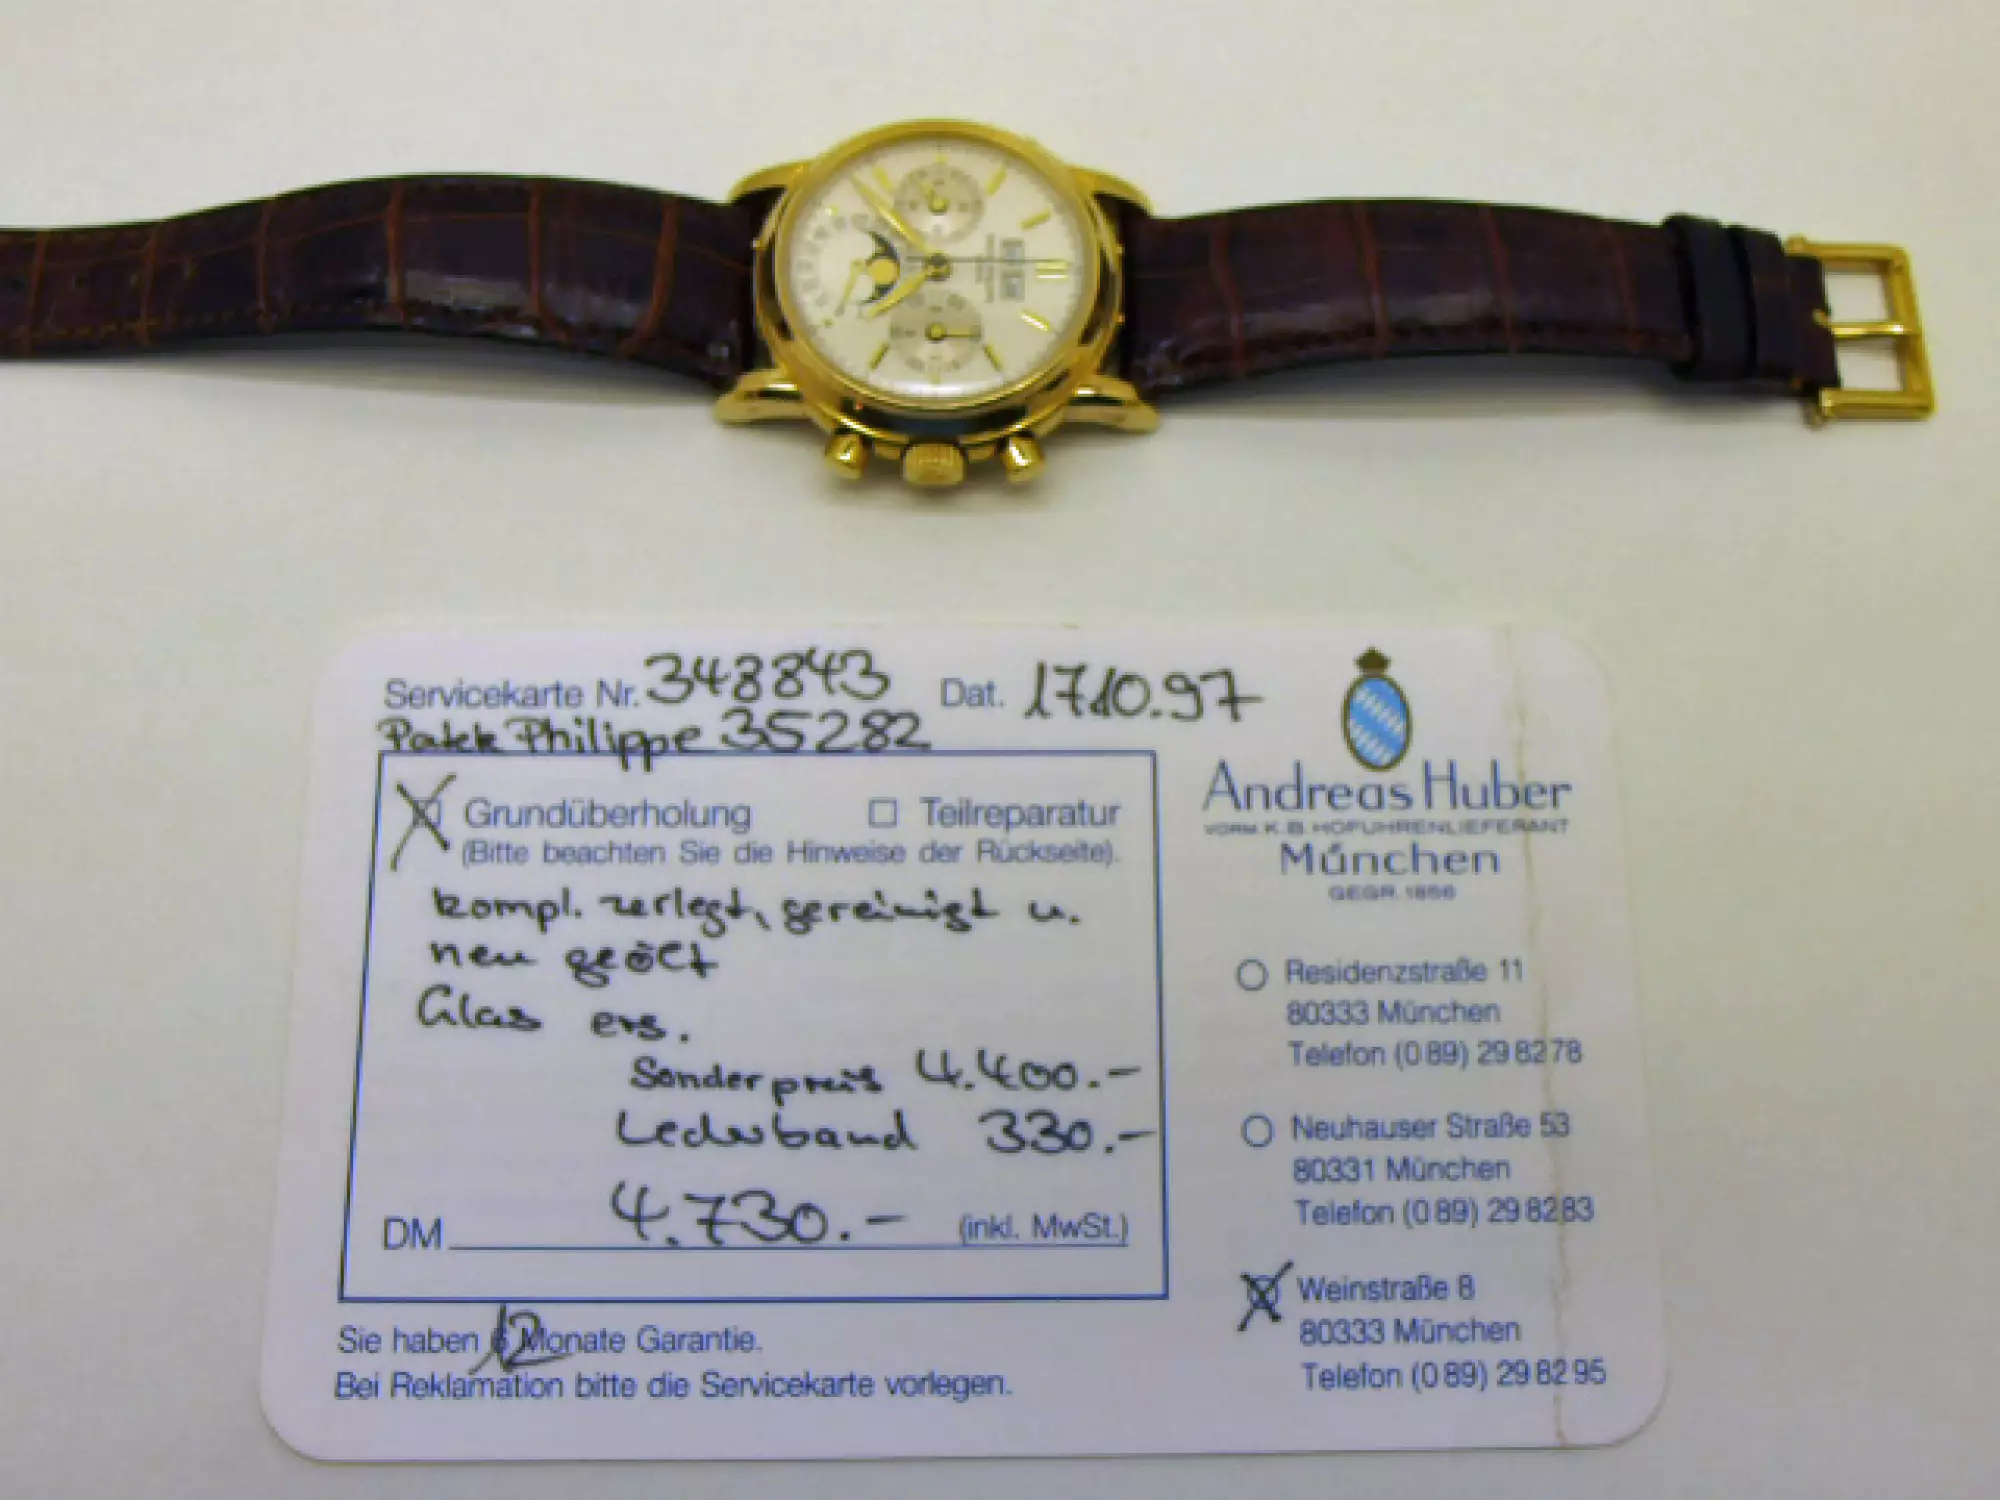 Servicekarte Nr. 348843 Dat. 17.10.97
Patek Philippe 35282
Grundüberholung Teilreparatur
(Bitte beachten Sie die Hinweise der Rückseite).
kompl. zerlegt, gereinigt u.
neu geölt
Glas ers.
Sonderpreis 4.400.-
Lederband 330.-
DM 4.730.- (inkl. MwSt.)
Sie haben 12 Monate Garantie.
Bei Reklamation bitte die Servicekarte vorlegen.
Andreas Huber
VORM. K. B. HOFUHRENLIEFERANT
München
GEGR. 1856
Residenzstraße 11
80333 München
Telefon (0 89) 29 82 78
Neuhauser Straße 53
80331 München
Telefon (0 89) 29 82 83
Weinstraße 8
80333 München
Telefon (0 89) 29 82 95